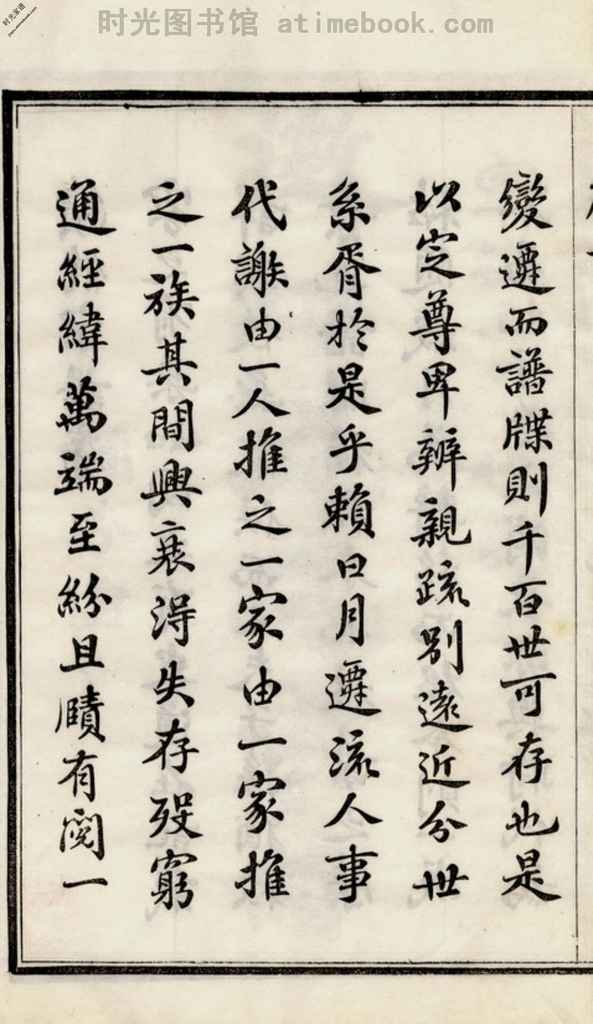 时光图书馆 atimebook.com
时光家谱
變遷而譜牒則千百世可存也是
以定尊卑辨親疏别遠近分世
系胥於是乎賴日月遷流人事
代謝由一人推之一家由一家推
之一族其間興衰得失存歿窮
通經緯萬端至紛且賾有閱一